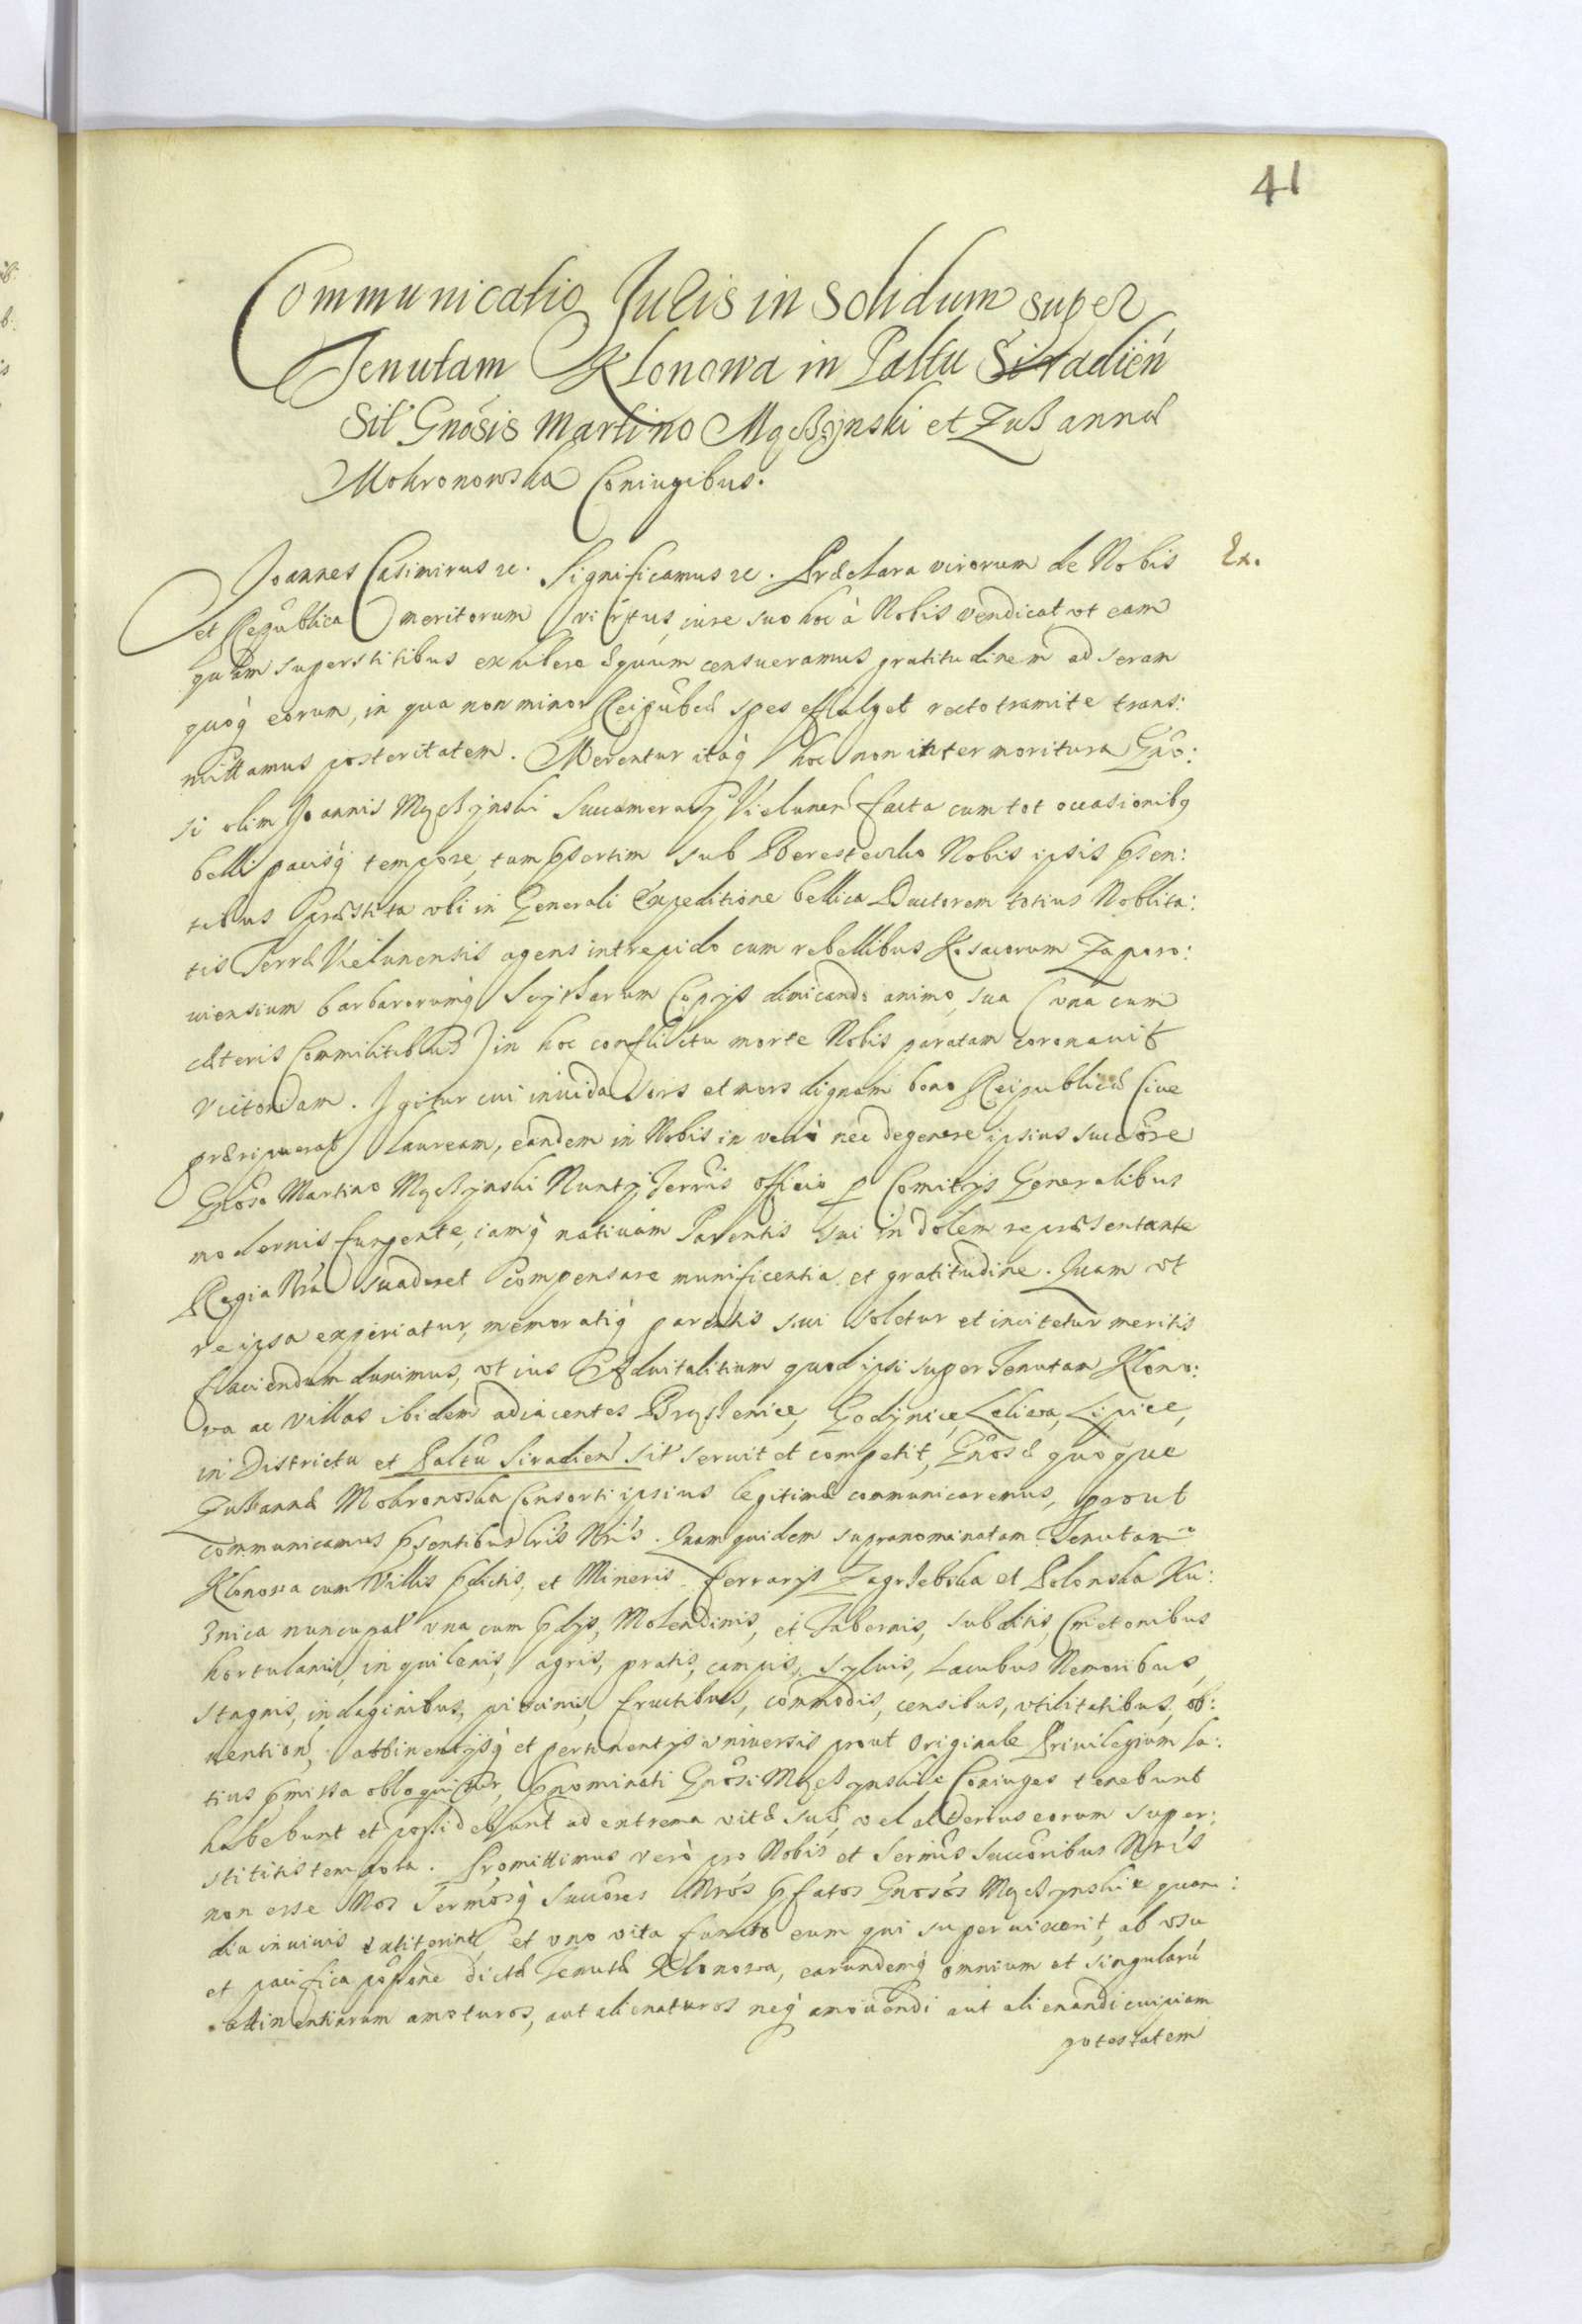 41
Communicatio Juris in solidum super
Tenutam Klonowa in Paltu Siradień
Sit' Gnosis Martino Mączynski et Zuβannæ
Mokronowska Coniugibus.
Ex.
Joannes Casimirus &c. Significamus &c. Præclara virorum de Nobis
et Republica meritorum virtus, iure suo hoc à Nobis vendicat, vt eam
quam superstitibus exhibere æquum censueramus gratitudinem ad seram
quoq; eorum, in qua non minor Reipubcæ spes effulget recto tramite trans:
mittamus posteritatem. Merentur itaq; hoc non intermoritura Gño:
si olim Joannis Mączynski Succamerarij Vielunen facta cum tot occasionibq
belli pacisq; tempore, tum pṡertim sub Beresteczko Nobis ipsis pṡen:
tibus præstita vbi in Generali Expeditione bellica Ductorem totius Noblita:
tis Terræ Vielunensis agens intrepido cum rebellibus Kosacorum Zaporo:
uiensium barbarorumq; Scytharum Copijs dimicando animo, sua (vna cum
cæteris Commilitibus) in hoc conflictu morte Nobis paratam coronauit
victoriam. Igitur cui inuida sors et mors dignam bono Reipublicæ Ciue
præripuerat lauream, eandem in Nobis in vero nec degenere ipsius succōre
Gnoso Martino Mączynski Nuntij Terris officio p Comitijs Generalibus
modernis fungente, iamq; natiuam Parentis sui indolem repræsentante
Regia Nra suaderet compensare munificentia et gratitudine. Quam vt
re ipsa experiatur, memoratiq; parentis sui soletur et incitetur meritis
faciendum duximus, vt ius Aduitalitium quod ipsi super Tenutam Klono:
wa ac villas ibidem adiacentes Brąszenice, Godynice, Leliwa, Lipice,
in Districtu et Paltu Siradien sit' seruit et competit, Gnosæ quoque
Zuβannæ Mokronoska Consorti ipsius legitimæ communicaremus, prout
communicamus pṡentibus lris Nris. Quam quidem supranominatam Tenutam
Klonowa cum Villis pdictis, et Mineris ferrarys Zagrzebska et Polonska Ku:
znica nuncupat' vna cum pdijs, Molendinis, et Tabernis, subditis, Cmetonibus
hortulanis, inquilenis, agris, pratis, campis, syluis, Lacubus Nemoribus,
stagnis, indaginibus, piscinis, fructibus, commodis, censibus, vtilitatibus, ob:
uention, attinentijsq; et pertinentijs vniuersis prout Originale Priuilegium la:
tius pmissa obloquitur, pnominati Gnosi Mączynskie Coniuges tenebunt
habebunt et possidebunt ad extrema vitæ suæ, vel alterius eorum super:
stitis tempora. Promittimus verò pro Nobis et Sermis Succoribus Nris
non esse Nos Sermosq; Succores Nros pfatos Gnosos Mączynskie quam:
diu in viuis extiterint, et vno vita functo eum qui superuixerit, ab vsu
et pacifica possone dictæ Tenutæ Klonowa, earundemq; omnium et singularū
attinentiarum amoturos, aut alienaturos neq; amouendi aut alienandi cuipiam
potestatem